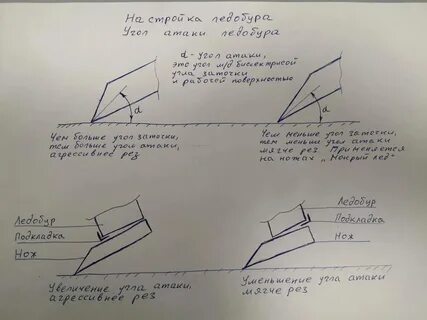 Настройка ледобура
Угол атаки ледобура
α - угол атаки,
это угол м/д биссектрисой
угла заточки
и рабочей поверхностью
α
α
Чем больше угол заточки,
тем больше угол атаки,
агрессивнее рез
Чем меньше угол заточки,
тем меньше угол атаки
мягче рез. Применяется
на ножах "Мокрый лед"
Ледобур
Подкладка
Нож
Ледобур
Подкладка
Нож
Увеличение угла атаки,
агрессивнее рез
Уменьшение угла атаки
мягче рез